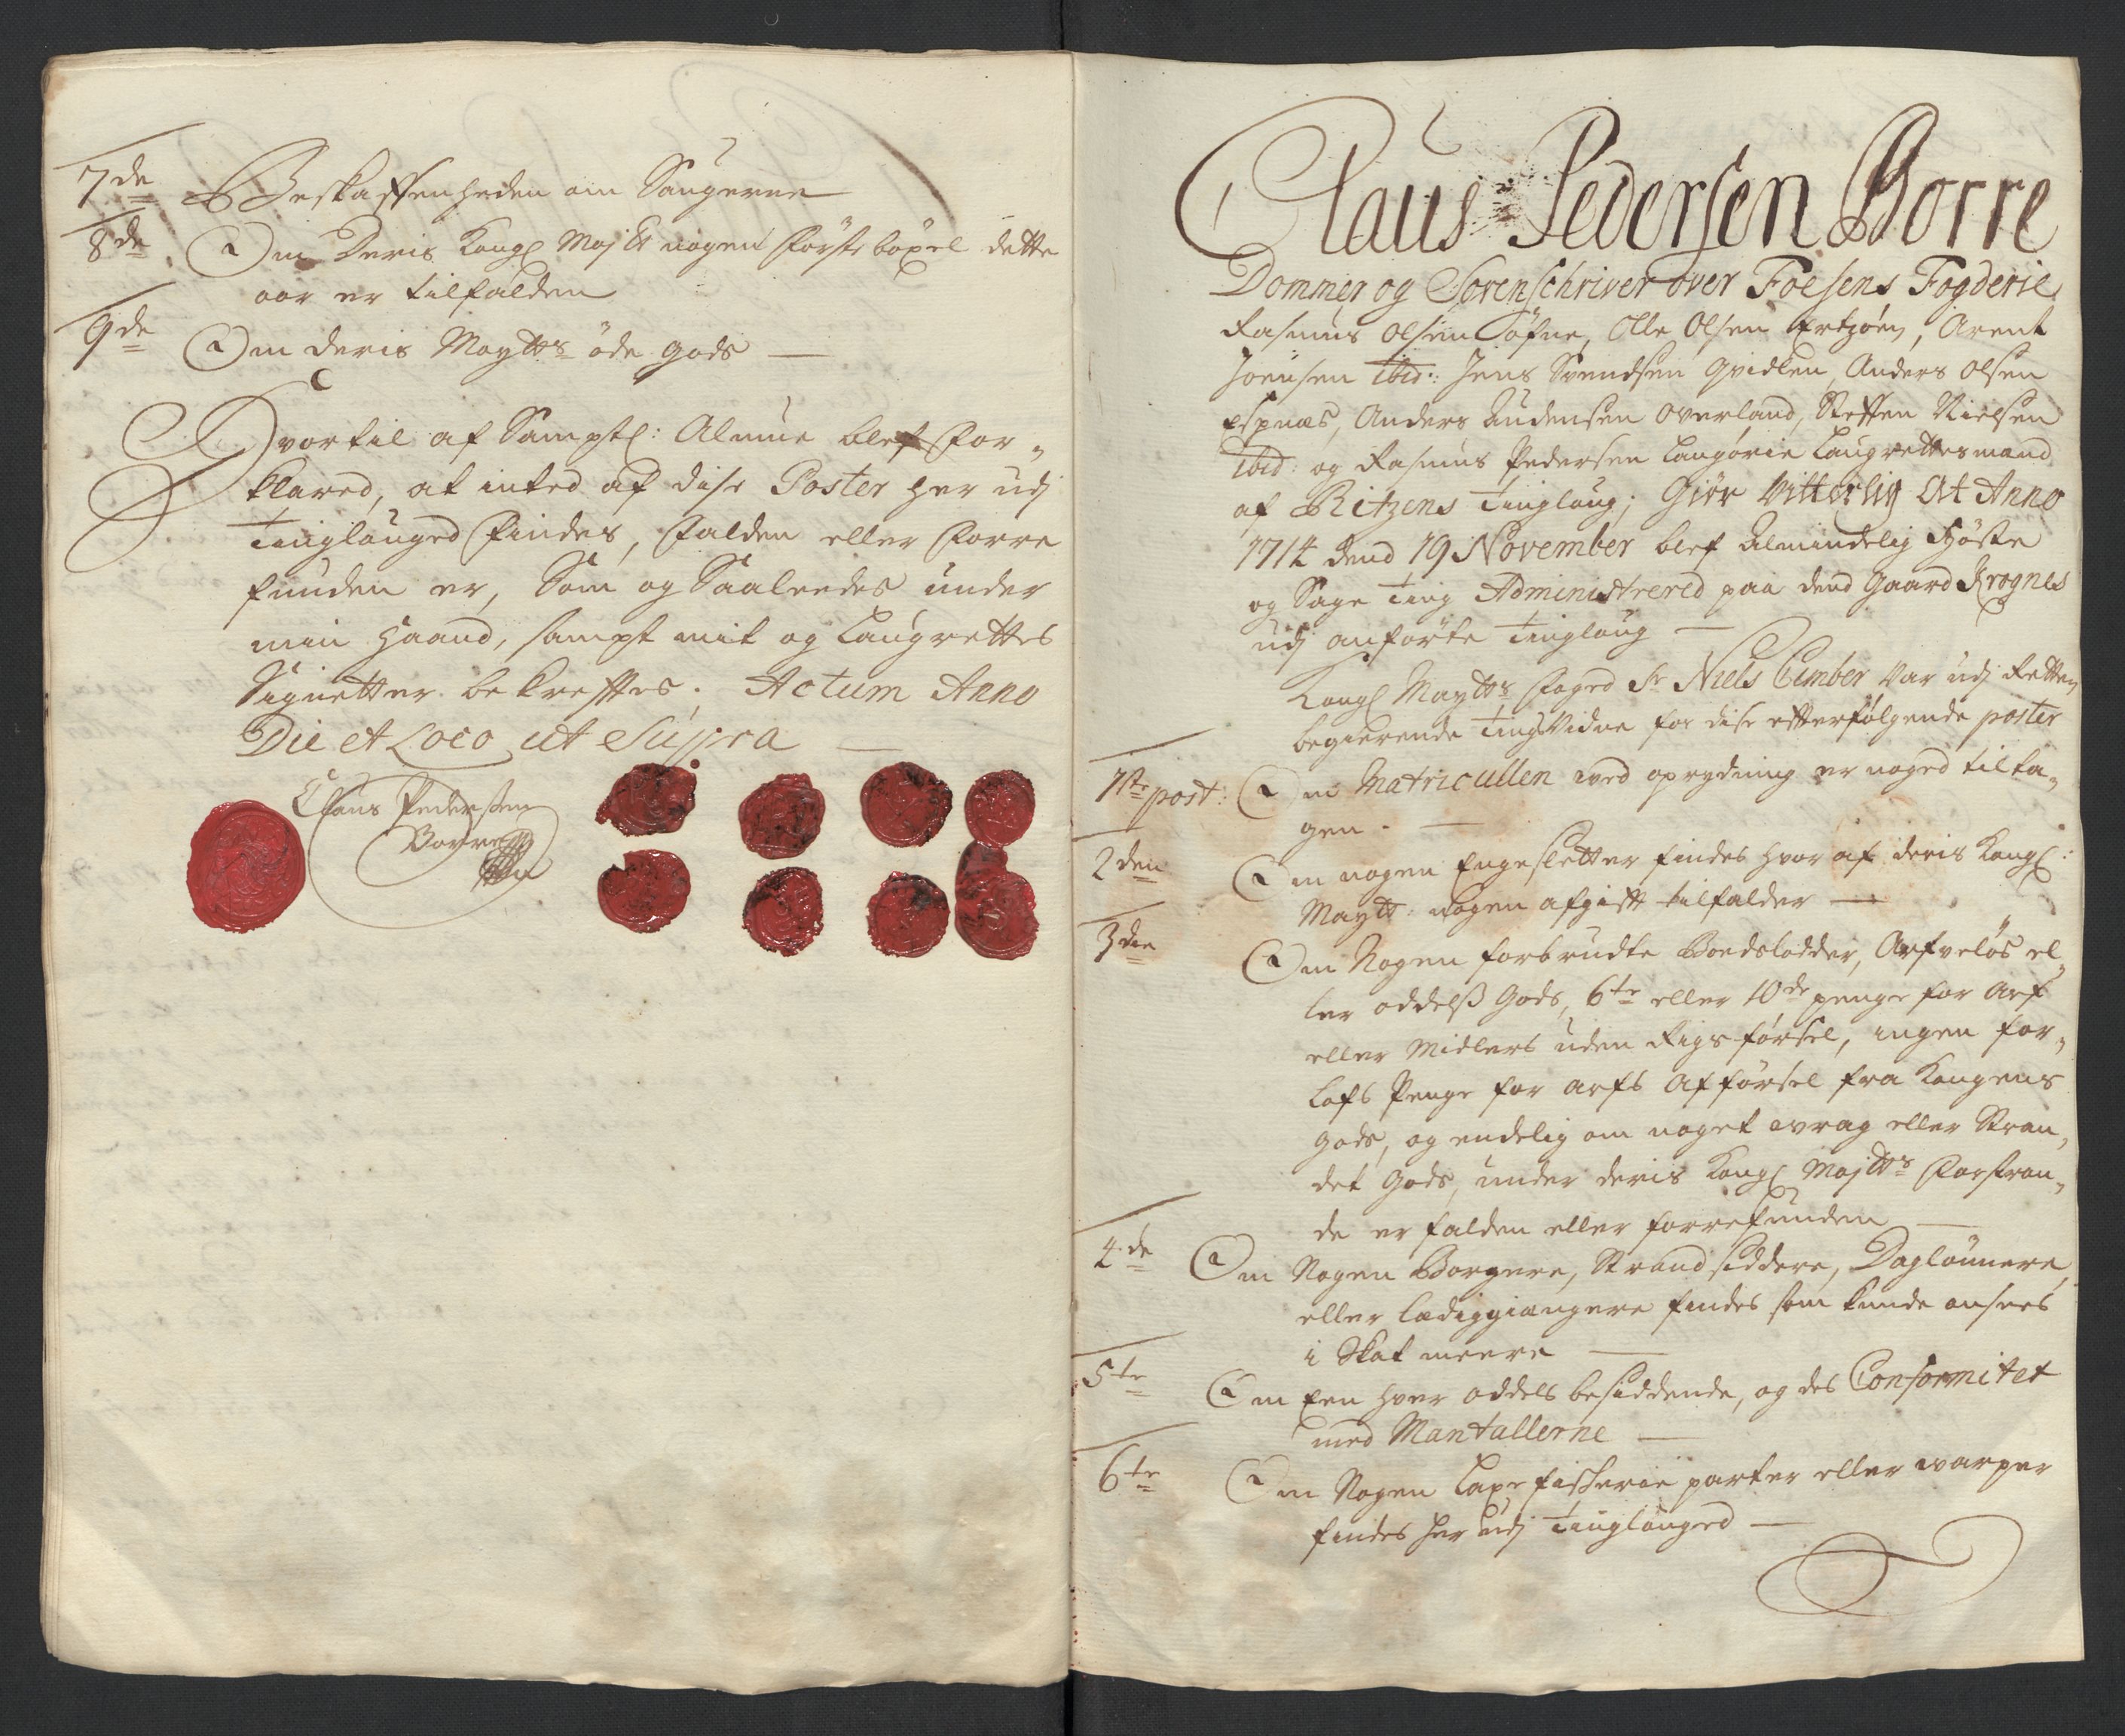 7de Beskaffenheden om Saugerne
8de Om Deris Kongl Maj tt nogen Förstebøxel dette
aar er tilfalden
9de Om deris Maytts öde gods
Hvortil af Samptl: Almue blef For„
klared, at inted af dise Poster her udj
Tinglauged findes, falden eller Forre
funden er, Som og Saaleedes under
min Haand, sampt mit og Laugrettes
Signetter bekreftes. Actum Anno
Die et Loco ut Supra
Claus Pedersen
Borre
Claus Pedersen Borre
Dommer og Sorenschriver over Foesens Fogderie
Rasmus Olsen Øfne, Olle Olsen Ertzøen, Arent
Joensen ibid: Jens Svendsen Qvidlen, Anders Olsen
Espnæs, Anders Audensen Overland, Steffen Nielsen
ibid: og Rasmus Pedersen Langørie Laugrettesmænd
af Bitzens Tinglaug; Giör Vitterlig At Anno
1714 dend 19 November blef Almindelig Höste
og Sage Ting Administrered paa dend Gaard Krognes
udj anførte Tinglaug
Kongl Maytts Foged Sr Niels Cimber Var udj Retten
begierende TingsVidne for dise efterfølgende poster
1ste post: Om Matricullen ved oprydning er noged tilta„
gen.
2den Om nogen Engesletter findes hvor af deris Kongl:
Maytt: nogen afgift tilfalder
3die Om Nogen forbrudte Boedslodder, Arfveløs el„
ler oddelß Gods, 6te eller 10de penge for Arf
eller Midlers uden Rigs førsel, ingen for„
lofs Penge for arfs Afførsel fra Kongens
gods, og endelig om noget vrag eller Stran„
det Gods, under deris Kongl Majtts Forstran„
de er falden eller forrefunden
4de Om Nogen Borgere, Strandsiddere, Daglönnere,
eller Lædiggiængere findes som kunde ansees
i Skat meere
5te Om Een hver oddels besiddende, og des Conformitet
med Mantallerne
6te Om Nogen Laxe fisherie parter eller warper
findes her udj Tinglauged